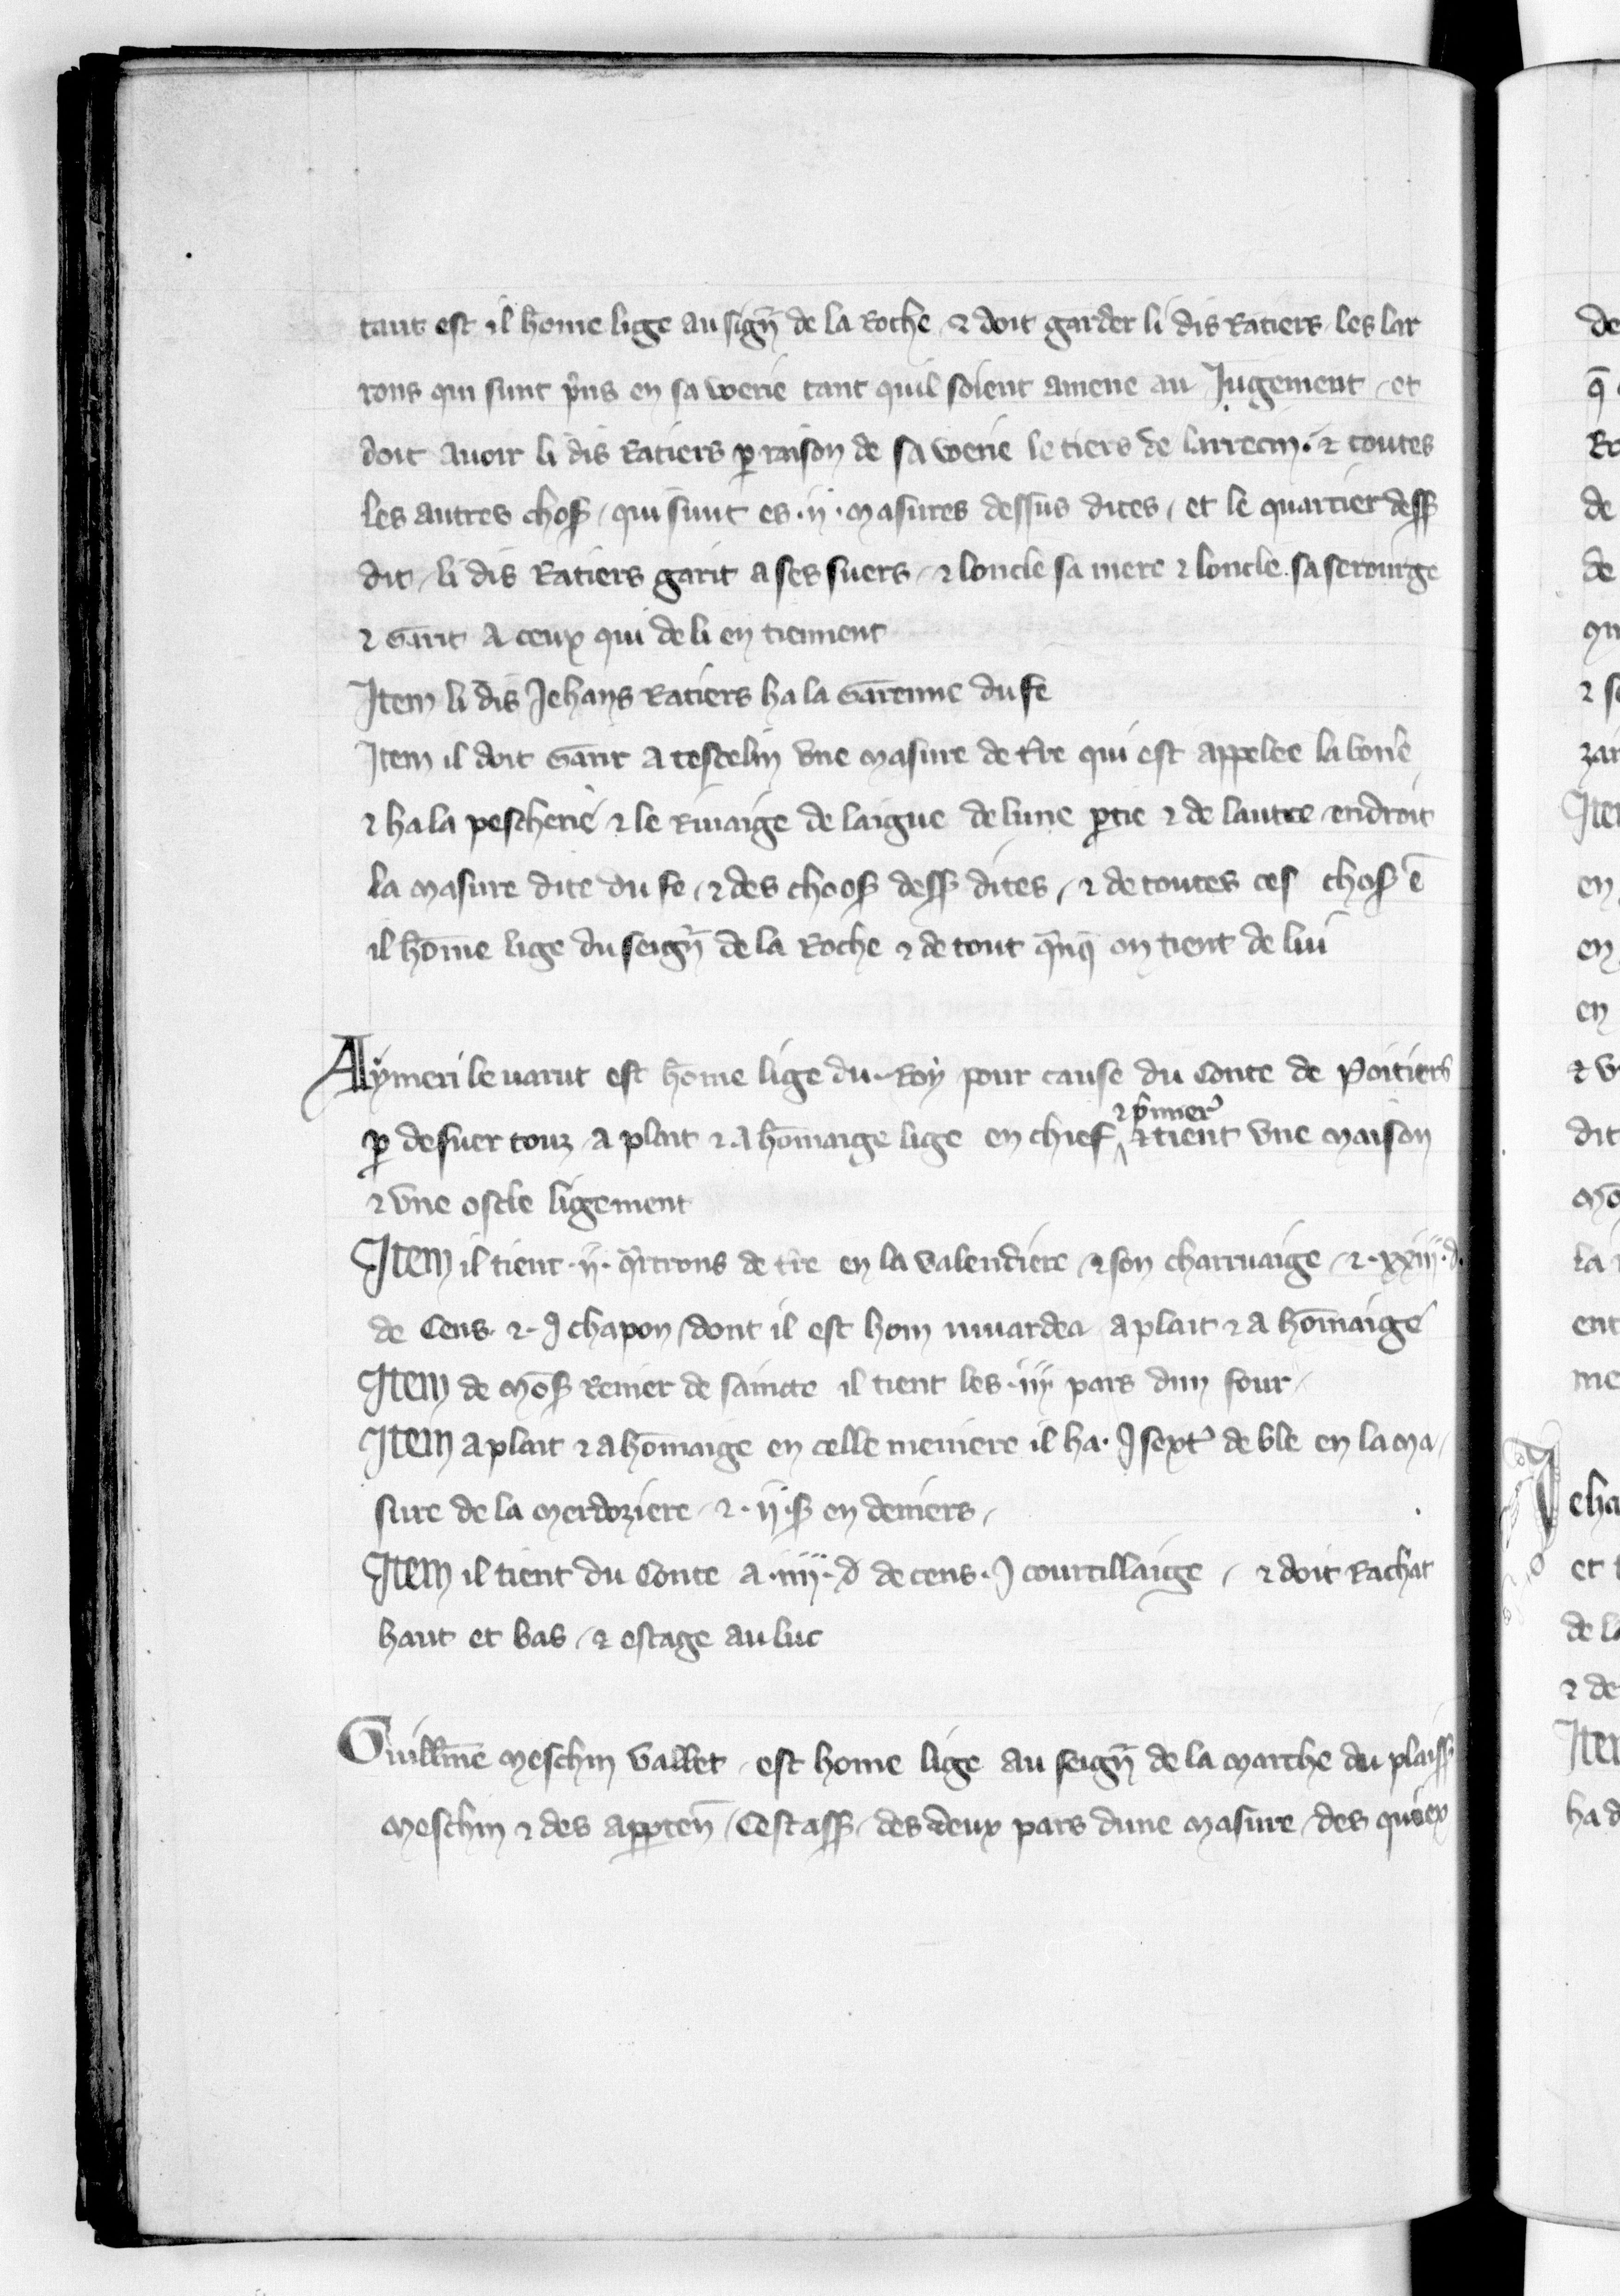 tant est il home lige au sign̄ de la Roche ⁊ doit garder li dis Ratiers les lar
rons qui sunt pͥns en sa voerie tant quil soient amene au Jugement et
doit auoir li dis Ratiers ꝑ raison de sa voerie le tiers de larrecin ⁊ toutes
les autres choſ qui sunt es .ij. masures dessus dites et le quartier dess
dit li dis Ratiers garit a ses suers ⁊ loncle sa mere ⁊ loncle sa serourge
⁊ Garit a ceux qui de li en tiennent
Item li dis Jehans Ratiers ha la Garenne du fe
Item il doit Garir a tescelin vne masure de tͬre qui est appelee la borie
⁊ ha la pescherie ⁊ le Riuaige de laigue de lune ꝑtie ⁊ de lautre endroit
la masure dite du fe ⁊ des choos dess dites ⁊ de toutes ces choſ ē
il hōme lige du seign̄ de la Roche ⁊ de tout qͣnq̄ on tient de lui
Aymeri le uarut est home lige du Roy pour cause du Conte de Poitiers
ꝑ desuer touz a plait ⁊ a hōmaige lige en chief ⁊ pͥmier ⁊ tient vne maison
⁊ vne oscle ligement
Item il tient .ij. qͣrtrons de tͬre en la valendiere ⁊ son charruaige ⁊ .xxiij. d.
de Cens ⁊ .I chapon dont il est hom a plait ⁊ a hōmaige
Item de moſ Renier de saincte il tient les .iij pars dun four
Item a plait ⁊ a hōmaige en celle meniere il ha .I sextͬ de ble en la ma
sure de la merdoziere ⁊ .ij. s en deniers
Item il tient du Conte a .iiij. d de cens .I courtillaige ⁊ doit Rachat
haut et bas ⁊ estage au luc
Guillm̄e meschin vallet est home lige au seign̄ de la marche du plaiss
meschin ⁊ des apꝑten̄ Cest ass des deux pars dune masure des quiex